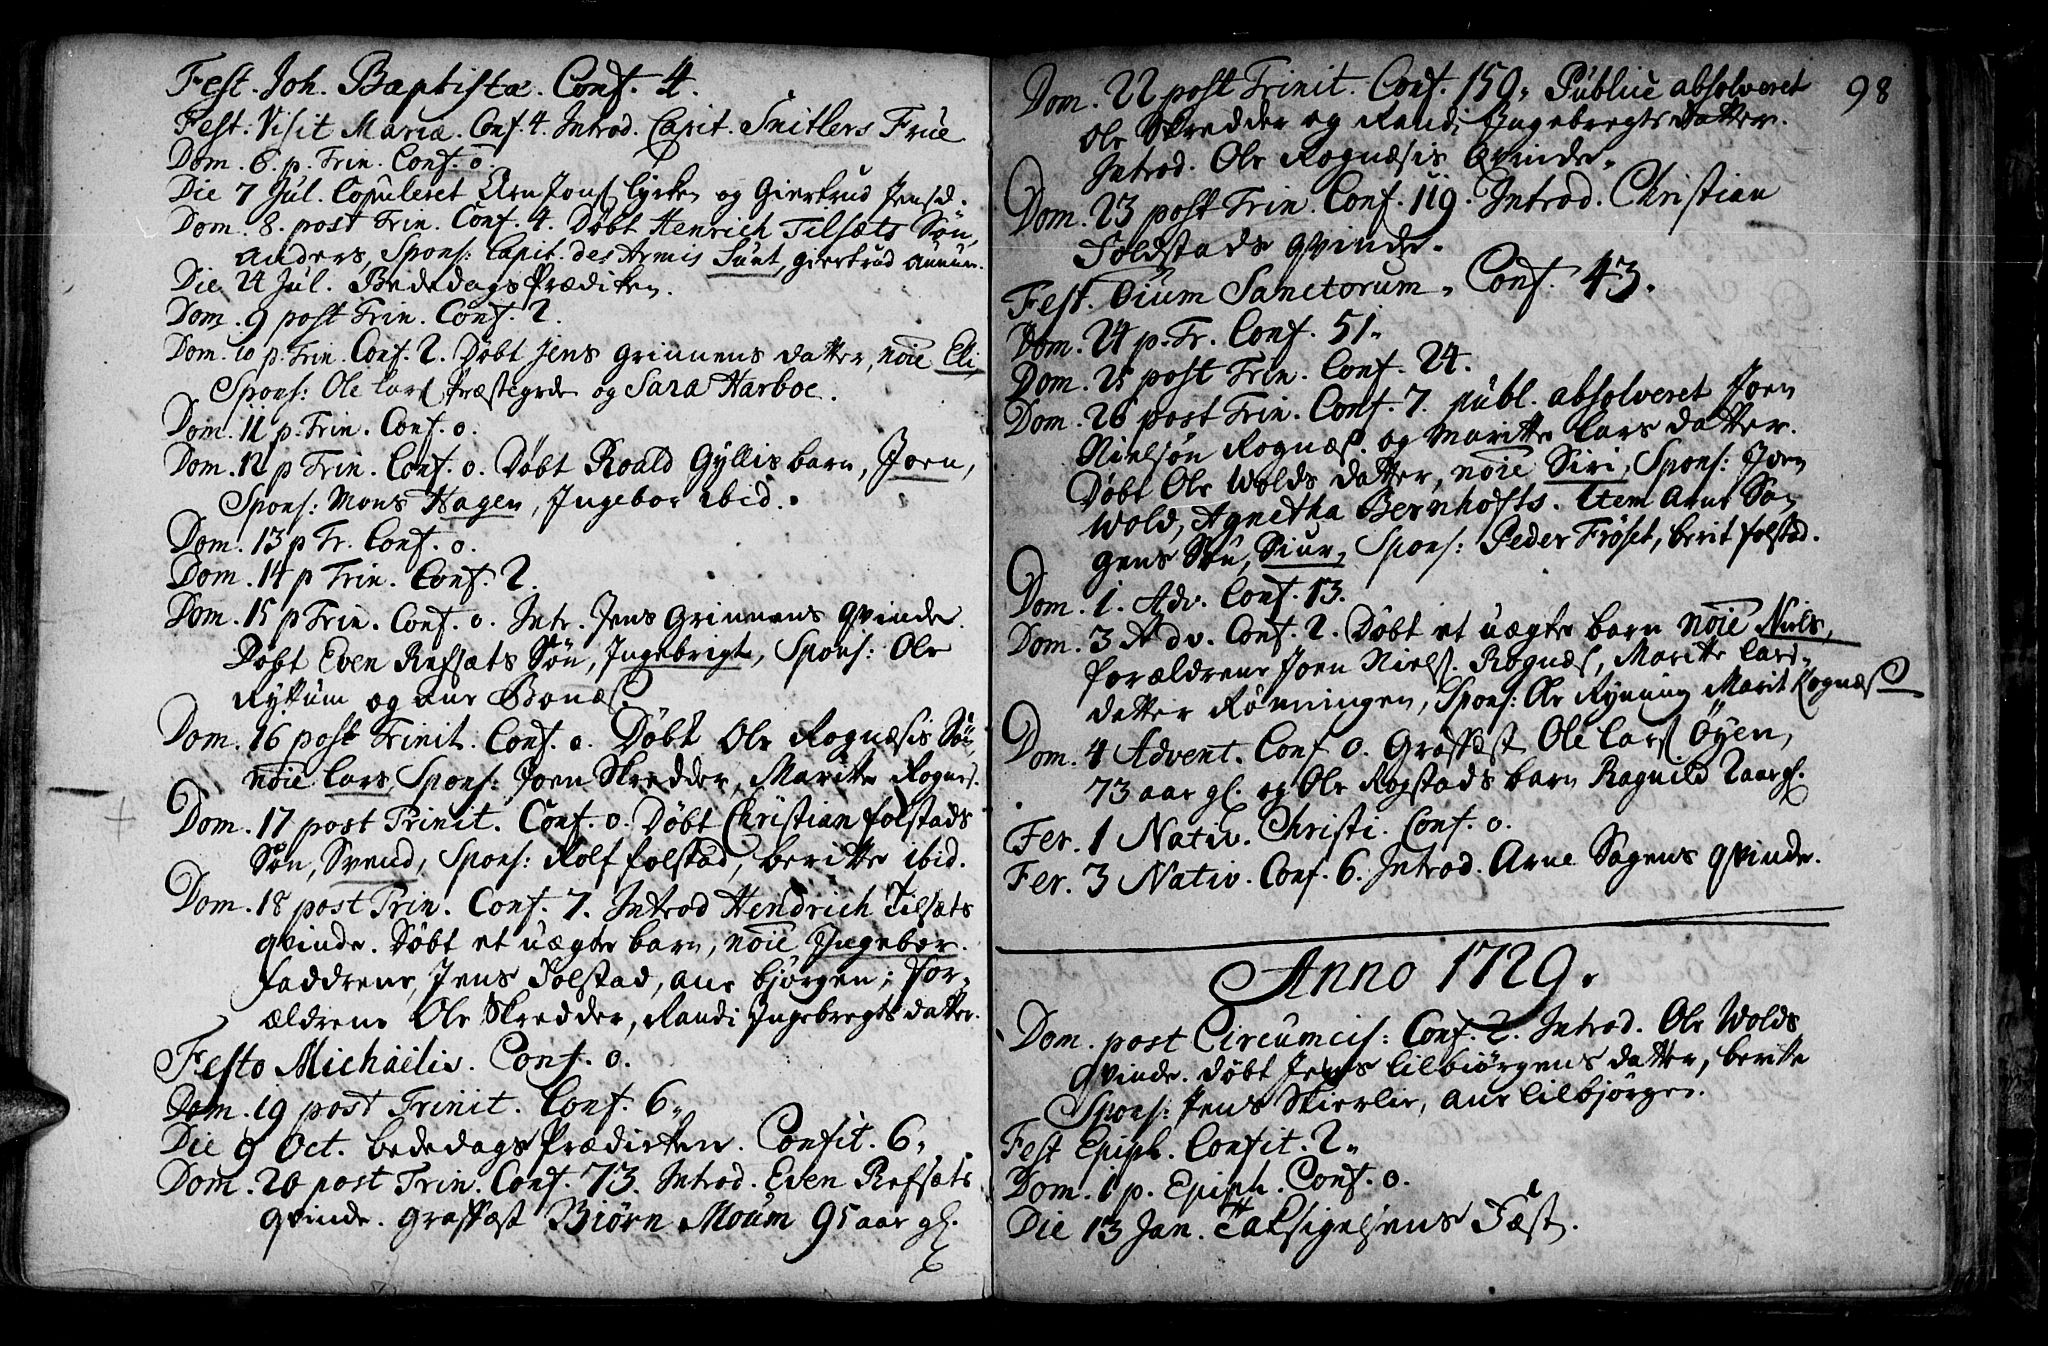 Fest. Joh. Baptistæ. Conf. 4.
Fest: Visit Mariæ. Conf. 4. Introd. Capit. Snitlers Frue
Dom. 6. p. Trin. Conf. 0.
Die 7 Jul. Copuleret Arn Jons Lyrken og Giertrud Jensd.
Dom. 8. post Trin. Conf. 4. Døbt Henrich Tilsæts Søn,
Anders, Spons: Capit. des Armis Sunt, giertrud
Die 24 Jul. Bededags Prædiken.
Dom. 9 post Trin. Conf. 2.
Dom. 10 p. Trin. Conf. 2. Døbt Jens Grinnens datter, nōīe Eli,
Spons: Ole Lars Præstegrde og Sara Harboe.
Dom. 11 p. Trin. Conf. 0.
Dom. 12 p Trin. Conf. 0. Døbt Roald Gyllis barn, Joen,
Spons: Mons Hagen, Ingebor ibid.
Dom. 13 p Tr. Conf. 0.
Dom. 14 p Trin. Conf. 2.
Dom. 15 p Trin. Conf. 0. Intr. Jens Grinnens Qvinde.
Døbt Even Refsæts Søn, Ingebrigt, Spons: Ole
Rykum og ane Bonæs.
Dom. 16 post Trinit. Conf. 0. Døbt Ole Rognæsis Søn,
nōīe Lars, Spons: Joen Skredder, Maritte Rognes.
Dom. 17 post Trinit. Conf. 0. Døbt Christian folstads
Søn, Svend, Spons: Rolf folstad, beritte ibid.
Dom. 18 post Trin. Conf. 7. Introd Hendrich Tilsæts
qvinde. Døbt et uægte barn, nōīe Ingebor.
faddrene, Jens Folstad, ane bjørgen; for-
ældrene Ole Skredder, Randi Ingebregts datter.
Festo Michaëlis. Conf. 0.
Dom. 19 post Trinit. Conf. 6.
Die 9 Oct. bededags Prædicken. Confit. 6.
Dom. 20 post Trin. Conf. 73. Introd. Even Refsæts
Qvinde. Graffæst Biørn Moum 95 aar gl.
98
Dom. 22 post Trinit. Conf. 150. Publicè absolveret
Ole Skredder og Randi Ingebregts datter.
Introd. Ole Rognæsis Qvinde.
Dom. 23 post Trin. Conf. 119. Introd. Christian
Foldstads qvinde.
Fest. Oium Sanctorum. Conf. 43.
Dom. 24 p. Tr. Conf. 51.
Dom. 25 post Trin. Conf. 24.
Dom. 26 post Trin. Conf. 7. publ. absolveret Joen
Nielsøn Rognæs. og Maritte Lars datter.
Døbt Ole Wolds datter, nōīe Siri, Spons: Joen
Wold, Agnetha Bernhofts. Item Arne Sa-
gens Søn, Siur, Spons: Peder Frøset, berit folstad.
Dom. 1. Adv. Conf. 13.
Dom. 3 Adv. Conf. 2. Døbt et uægte barn nōīe Niels,
forældrene Joen Niels. Rognæs, Maritte Lars-
datter Rønningen, Spons: Ole Rynning Marit Rognæs
Dom. 4 Advent. Conf 0. Graffæst Ole Lars Øyen,
73 aar gl. og Ole Rogstads barn Ragnild 2 aar gl.
Fer. 1 Nativ. Christi. Conf. 0.
Fer. 3 Nativ. Conf. 6. Introd. Arne Sagens qvinde.
Anno 1729.
Dom. post Circumcis: Conf. 2. Introd. Ole Wolds
Qvinde. døbt Jens Lilbiørgens datter, berite
Spons: Jens Skierlie, ane lilbjørgen.
Fest Epiph. Confit. 2.
Dom. 1 p. Epiph. Conf. 0.
Die 13 Jan. Taksigelsens Fæst.